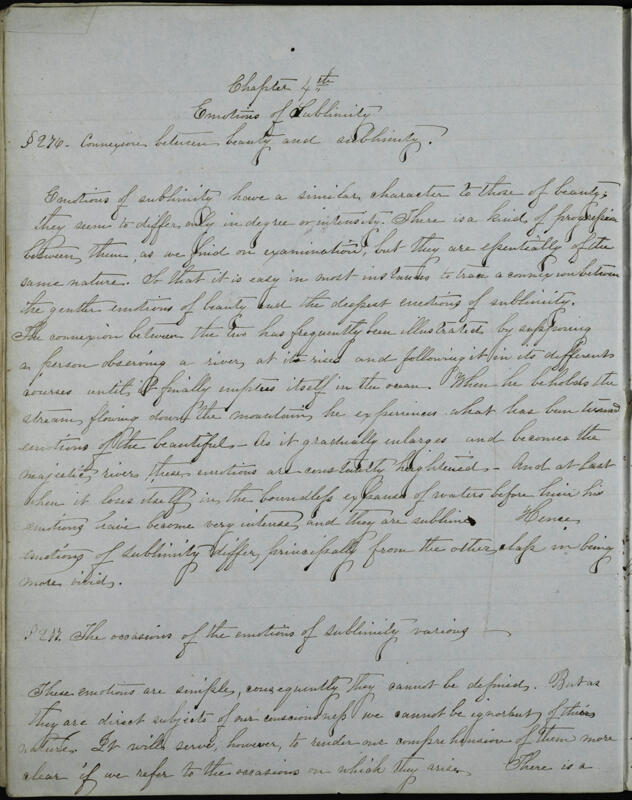 Chapter 4th
Emotions of Sublimity
§ 276. Connexion between beauty and sublimity.
Emotions of sublimity have a similar character to those of beauty;
they seem to differ only in degree or intensity. There is a kind of progression
between them, as we find on examination, but they are essentially of the
same nature. So that it is easy in most instances to trace a connexion between
the gentler emotions of beauty and the deepest emotions of sublimity.
The connexion between the two has frequently been illustrated by supposing
a person observing a river at its rise and following it in its different
courses until it finally empties itself in the ocean. When he beholds the
stream flowing down the mountain he experiences what has been termed
emotions of the beautiful – As it gradually enlarges and becomes the
majestic river these emotions are constantly heightened – And at last
when it loses itself in the boundless expanse of waters before him his
emotions have become very intense and they are sublime Hence
emotions of sublimity differ principally from the other class in being
more vivid.
§ 277. The occasions of the emotions of sublimity various —
These emotions are simple, consequently they cannot be defined. But as
they are direct subjects of our consciousness we cannot be ignorant of their
nature. It will serve, however, to render our comprehension of them more
clear if we refer to the occasions on which they arise There is a